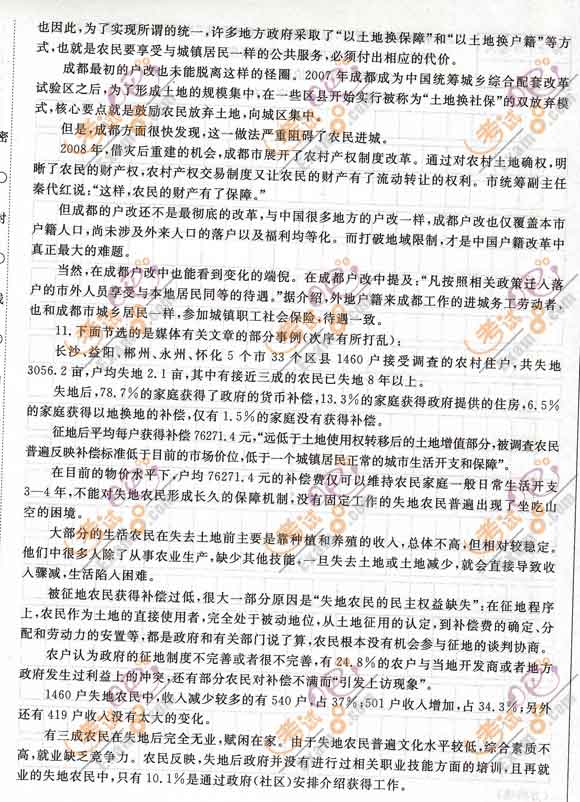 也因此,为了实现所谓的统一,许多地方政府采取了“以土地换保障”和“以土地换户籍”等方
式,也就是农民要享受与城镇居民一样的公共服务,必须付出相应的代价。
成都最初的户改也未能脱离这样的怪圈。2007年成都成为中国统筹城乡综合配套改革
试验区之后,为了形成土地的规模集中,在一些区县开始实行被称为“土地换社保”的双放弃模
式,核心要点就是鼓励农民放弃土地,向城区集中。
但是,成都方面很快发现,这一做法严重阻碍了农民进城。
2008年,借灾后重建的机会,成都市展开了农村产权制度改革。通过对农村土地确权,明
晰了农民的财产权,农村产权交易制度又让农民的财产有了流动转让的权利。市统筹副主任
秦代红说:“这样,农民的财产有了保障。”
但成都的户改还不是最彻底的改革,与中国很多地方的户改一样,成都户改也仅覆盖本市
户籍人口,尚未涉及外来人口的落户以及福利均等化。而打破地域限制,才是中国户籍改革中
真正最大的难题。
当然,在成都户改中也能看到变化的端倪。在成都户改中提及:“凡按照相关政策迁入落
户的市外人员享受与本地居民同等的待遇。”据介绍,外地户籍来成都工作的进城务工劳动者,
也和成都市城乡居民一样,参加城镇职工社会保险,待遇一致。
11.下面节选的是媒体有关文章的部分事例(次序有所打乱):
长沙、益阳、郴州、永州、怀化5个市33个区县1460户接受调查的农村住户,共失地
3056.2亩,户均失地2.1亩,其中有接近三成的农民已失地8年以上。
失地后,78.7%的家庭获得了政府的货币补偿,13.3%的家庭获得政府提供的住房,6.5%
的家庭获得以地换地的补偿,仅有1.5%的家庭没有获得补偿。
征地后平均每户获得补偿76271.4元,“远低于土地使用权转移后的土地增值部分,被调查农民
普遍反映补偿标准低于目前的市场价位,低于一个城镇居民正常的城市生活开支和保障”。
在目前的物价水平下,户均76271.4元的补偿费仅可以维持农民家庭一般日常生活开支
3—4年,不能对失地农民形成长久的保障机制,没有固定工作的失地农民普遍出现了坐吃山
空的困境。
大部分的生活农民在失去土地前主要是靠种植和养殖的收入,总体不高,但相对较稳定。
他们中很多人除了从事农业生产,缺少其他技能,一旦失去土地或土地减少,就会直接导致收
入骤减,生活陷入困难。
被征地农民获得补偿过低,很大一部分原因是“失地农民的民主权益缺失”;在征地程序
上,农民作为土地的直接使用者,完全处于被动地位,从土地征用的认定,到补偿费的确定、分
配和劳动力的安置等,都是政府和有关部门说了算,农民根本没有机会参与征地的谈判协商。
农户认为政府的征地制度不完善或者很不完善,有24.8%的农户与当地开发商或者地方
政府发生过利益上的冲突,还有部分农民对补偿不满而“引发上访现象”。
1460户失地农民中,收入减少较多的有540户,占37%;501户收入增加,占34.3%;另外
还有419户收入没有太大的变化。
有三成农民在失地后完全无业,赋闲在家。由于失地农民普遍文化水平较低,综合素质不
高,就业缺乏竞争力。农民反映,失地后政府并没有进行过相关职业技能方面的培训,且再就
业的失地农民中,只有10.1%是通过政府(社区)安排介绍获得工作。
密
封